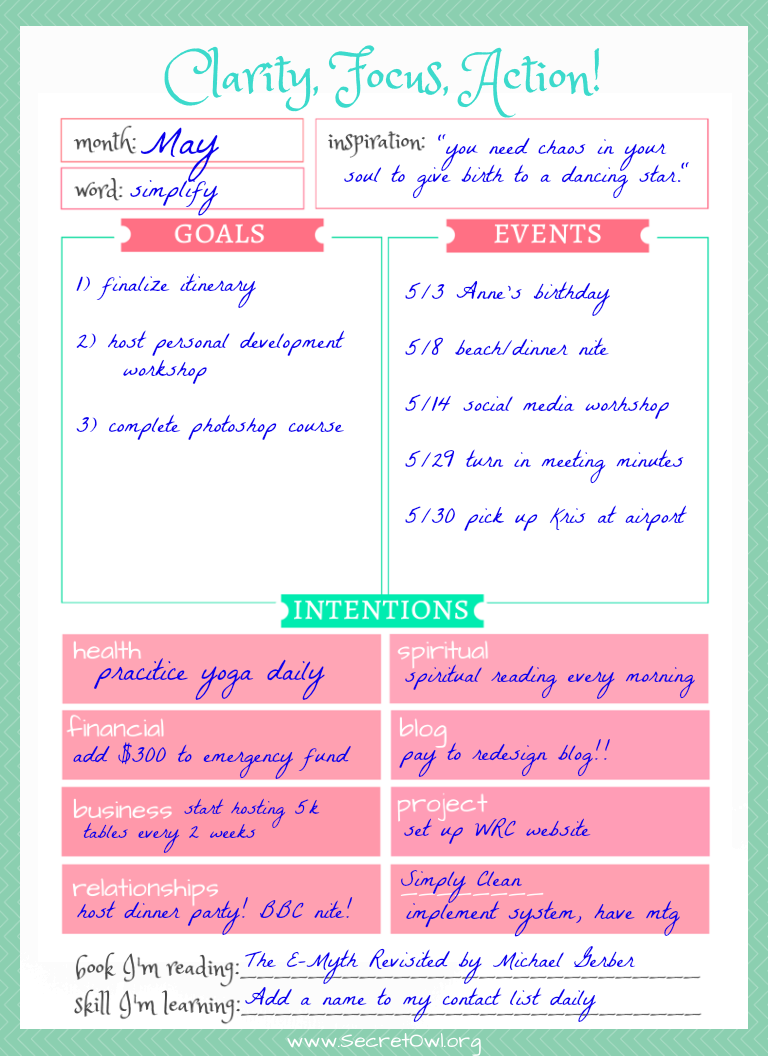 Clarity, Focus, Action!
month: May
word: simplify
inspiration: "you need chaos in your
soul to give birth to a dancing star."
GOALS
1) finalize itinerary
2) host personal development
workshop
3) complete photoshop course
EVENTS
5/3 Anne's birthday
5/8 beach/dinner nite
5/14 social media worhshop
5/29 turn in meeting minutes
5/30 pick up Kris at airport
INTENTIONS
health
pracitice yoga daily
spiritual
spiritual reading every morning
financial
add $300 to emergency fund
blog
pay to redesign blog!!
business start hosting 5k
tables every 2 weeks
project
set up WRC website
relationships
host dinner party! BBC nite!
Simply Clean
implement system, have mtg
book I'm reading: The E-Myth Revisited by Michael Gerber
skill I'm learning: Add a name to my contact list daily
www.SecretOwl.org